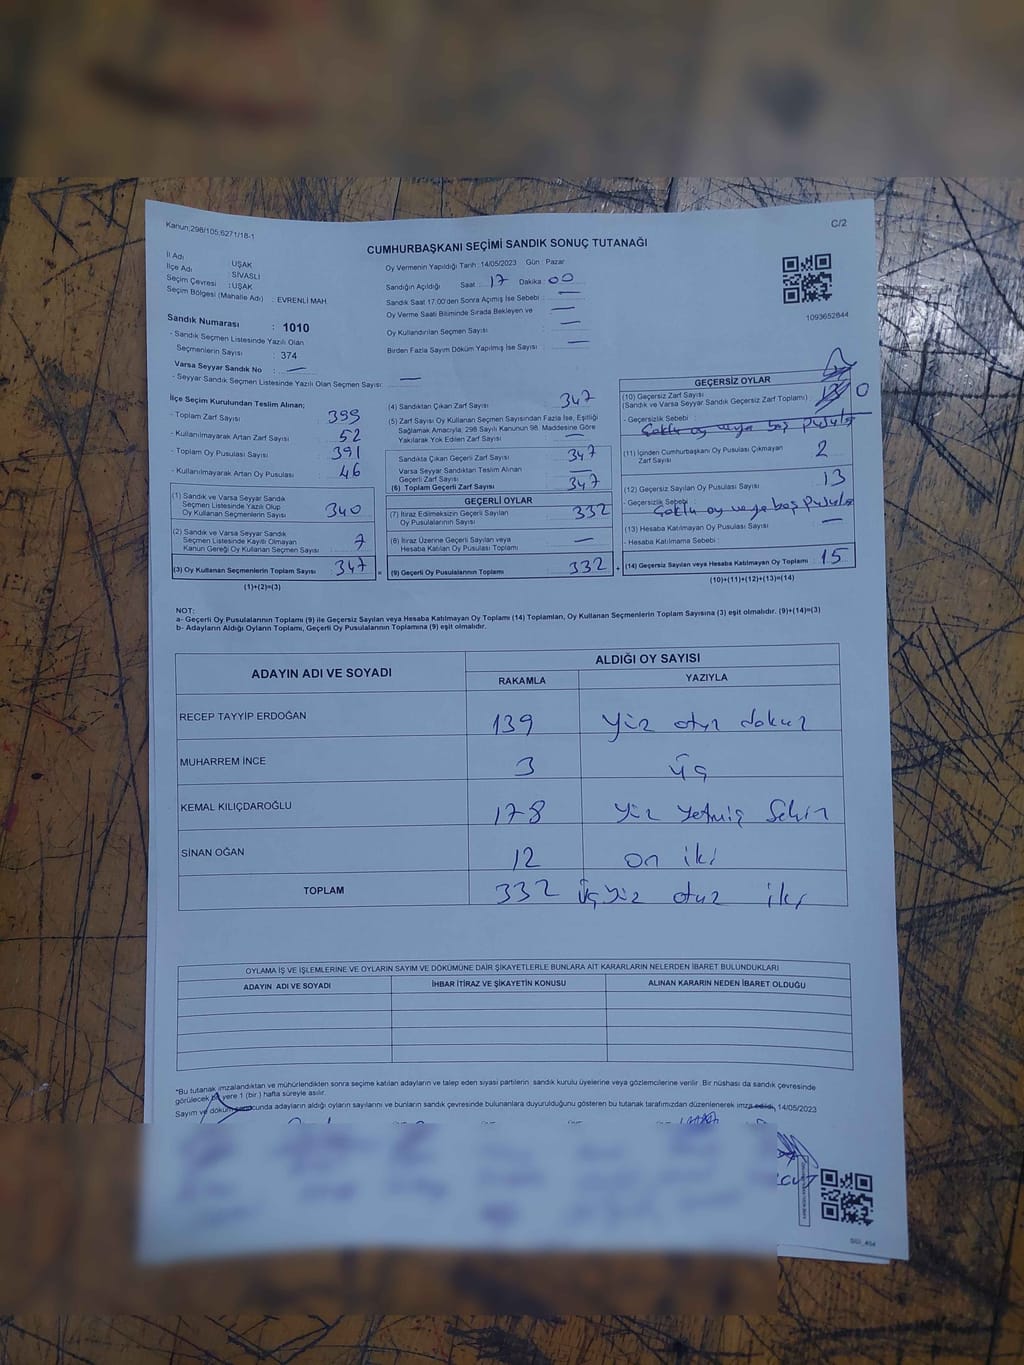 Kanun;298/105;6271/18-1
C/2
CUMHURBAŞKANI SEÇİMİ SANDIK SONUÇ TUTANAĞI
İl Adı : UŞAK
İlçe Adı : SİVASLI
Seçim Çevresi : UŞAK
Seçim Bölgesi (Mahalle Adı) : EVRENLİ MAH
Sandık Numarası : 1010
- Sandık Seçmen Listesinde Yazılı Olan
Seçmenlerin Sayısı : 374
Varsa Seyyar Sandık No : —
- Seyyar Sandık Seçmen Listesinde Yazılı Olan Seçmen Sayısı: —
Oy Vermenin Yapıldığı Tarih : 14/05/2023 Gün : Pazar
Sandığın Açıldığı Saat : 17 Dakika : 00
Sandık Saat 17.00'den Sonra Açılmış İse Sebebi : —
Oy Verme Saati Bitiminde Sırada Bekleyen ve —
Oy Kullandırılan Seçmen Sayısı : —
Birden Fazla Sayım Döküm Yapılmış İse Sayısı : —
1093652844
İlçe Seçim Kurulundan Teslim Alınan;
- Toplam Zarf Sayısı : 399
- Kullanılmayarak Artan Zarf Sayısı : 52
- Toplam Oy Pusulası Sayısı : 391
- Kullanılmayarak Artan Oy Pusulası : 46
(1) Sandık ve Varsa Seyyar Sandık
Seçmen Listesinde Yazılı Olup
Oy Kullanan Seçmenlerin Sayısı : 340
(2) Sandık ve Varsa Seyyar Sandık
Seçmen Listesinde Kayıtlı Olmayan
Kanun Gereği Oy Kullanan Seçmen Sayısı : 7
(3) Oy Kullanan Seçmenlerin Toplam Sayısı : 347 =
(1)+(2)=(3)
(4) Sandıktan Çıkan Zarf Sayısı : 347
(5) Zarf Sayısı Oy Kullanan Seçmen Sayısından Fazla İse, Eşitliği
Sağlamak Amacıyla; 298 Sayılı Kanunun 98. Maddesine Göre
Yakılarak Yok Edilen Zarf Sayısı : —
Sandıkta Çıkan Geçerli Zarf Sayısı : 347
Varsa Seyyar Sandıktan Teslim Alınan
Geçerli Zarf Sayısı : —
(6) Toplam Geçerli Zarf Sayısı : 347
GEÇERLİ OYLAR
(7) İtiraz Edilmeksizin Geçerli Sayılan
Oy Pusulalarının Sayısı : 332
(8) İtiraz Üzerine Geçerli Sayılan veya
Hesaba Katılan Oy Pusulası Toplamı : —
(9) Geçerli Oy Pusulalarının Toplamı : 332 +
GEÇERSİZ OYLAR
(10) Geçersiz Zarf Sayısı
(Sandık ve Varsa Seyyar Sandık Geçersiz Zarf Toplamı) : 0
- Geçersizlik Sebebi :
Çoklu oy veya boş pusula
(11) İçinden Cumhurbaşkanı Oy Pusulası Çıkmayan
Zarf Sayısı : 2
(12) Geçersiz Sayılan Oy Pusulası Sayısı : 13
- Geçersizlik Sebebi :
Çoklu oy veya boş pusula
(13) Hesaba Katılmayan Oy Pusulası Sayısı : —
- Hesaba Katılmama Sebebi :
(14) Geçersiz Sayılan veya Hesaba Katılmayan Oy Toplamı : 15
(10)+(11)+(12)+(13)=(14)
NOT:
a- Geçerli Oy Pusulalarının Toplamı (9) ile Geçersiz Sayılan veya Hesaba Katılmayan Oy Toplamı (14) Toplamları, Oy Kullanan Seçmenlerin Toplam Sayısına (3) eşit olmalıdır. (9)+(14)=(3)
b- Adayların Aldığı Oyların Toplamı, Geçerli Oy Pusulalarının Toplamına (9) eşit olmalıdır.
ADAYIN ADI VE SOYADI
ALDIĞI OY SAYISI
RAKAMLA YAZIYLA
RECEP TAYYİP ERDOĞAN 139 Yüz otuz dokuz
MUHARREM İNCE 3 üç
KEMAL KILIÇDAROĞLU 178 Yüz Yetmiş Sekiz
SİNAN OĞAN 12 on iki
TOPLAM 332 üçyüz otuz iki
OYLAMA İŞ VE İŞLEMLERİNE VE OYLARIN SAYIM VE DÖKÜMÜNE DAİR ŞİKAYETLERLE BUNLARA AİT KARARLARIN NELERDEN İBARET BULUNDUKLARI
ADAYIN ADI VE SOYADI İHBAR İTİRAZ VE ŞİKAYETİN KONUSU ALINAN KARARIN NEDEN İBARET OLDUĞU
*Bu tutanak imzalandıktan ve mühürlendikten sonra seçime katılan adayların ve talep eden siyasi partilerin sandık kurulu üyelerine veya gözlemcilerine verilir. Bir nüshası da sandık çevresinde
görülecek bir yere 1 (bir) hafta süreyle asılır.
Sayım ve döküm sonucunda adayların aldığı oyların sayılarını ve bunların sandık çevresinde bulunanlara duyurulduğunu gösteren bu tutanak tarafımızdan düzenlenerek imza edildi. 14/05/2023